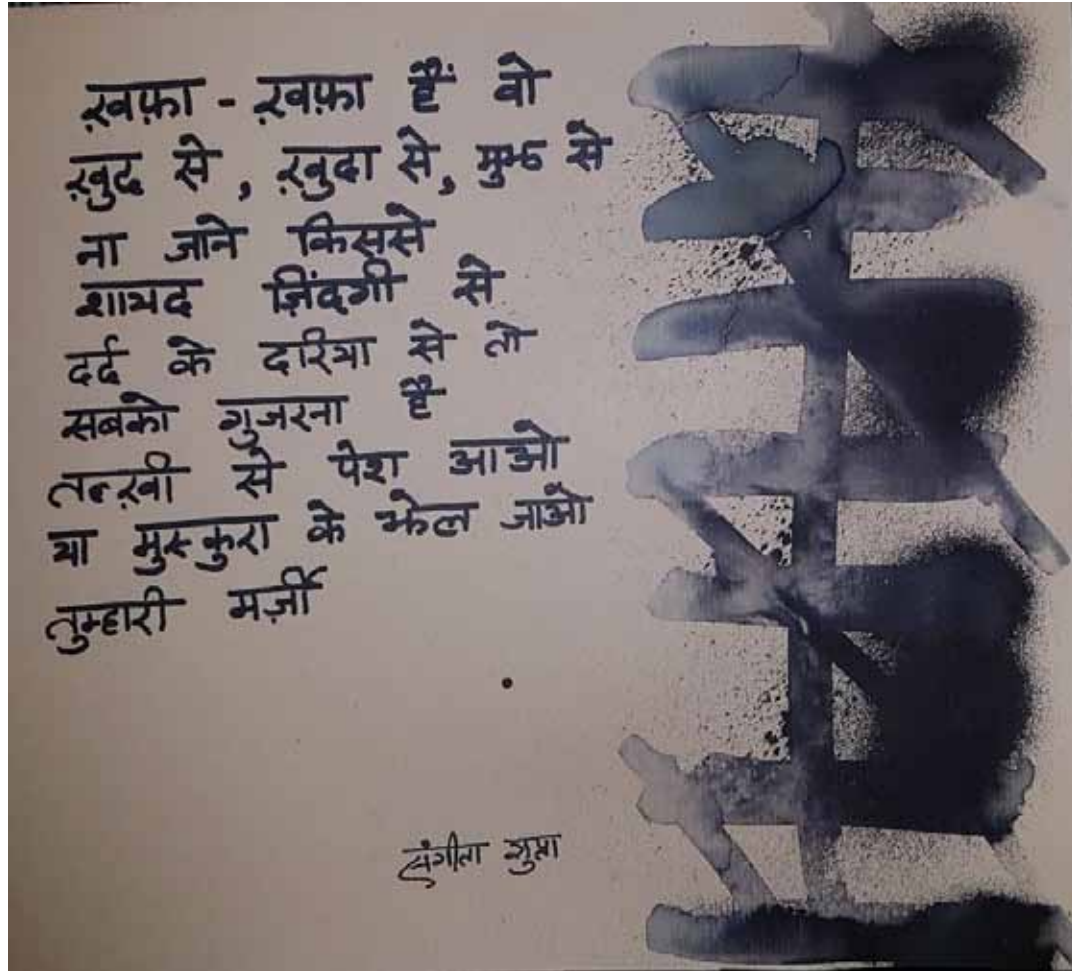 ख़फ़ा - ख़फ़ा हैं वो
ख़ुद से, ख़ुदा से, मुझ से
ना जाने किससे
शायद ज़िंदगी से
दर्द के दरिया से तो
सबको गुजरना है
तल्ख़ी से पेश आओ
या मुस्कुरा के झेल जाओ
तुम्हारी मर्ज़ी
संगीता गुप्ता